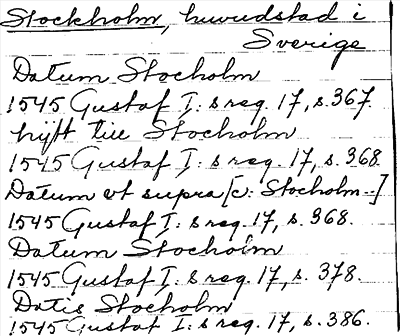 Stockholm, huvudstad i
Sverige
Datum Stocholm
1545 Gustaf I:s reg. 17, s. 367.
hijtt till Stocholm
1545 Gustaf I:s reg. 17, s. 368.
Datum vt supra [c: Stocholm..]
1545 Gustaf I:s reg. 17, s. 368.
Datum Stocholm
1545 Gustaf I:s reg. 17, s. 378.
Datis Stocholm
1545 Gustaf I:s reg. 17, s. 386.